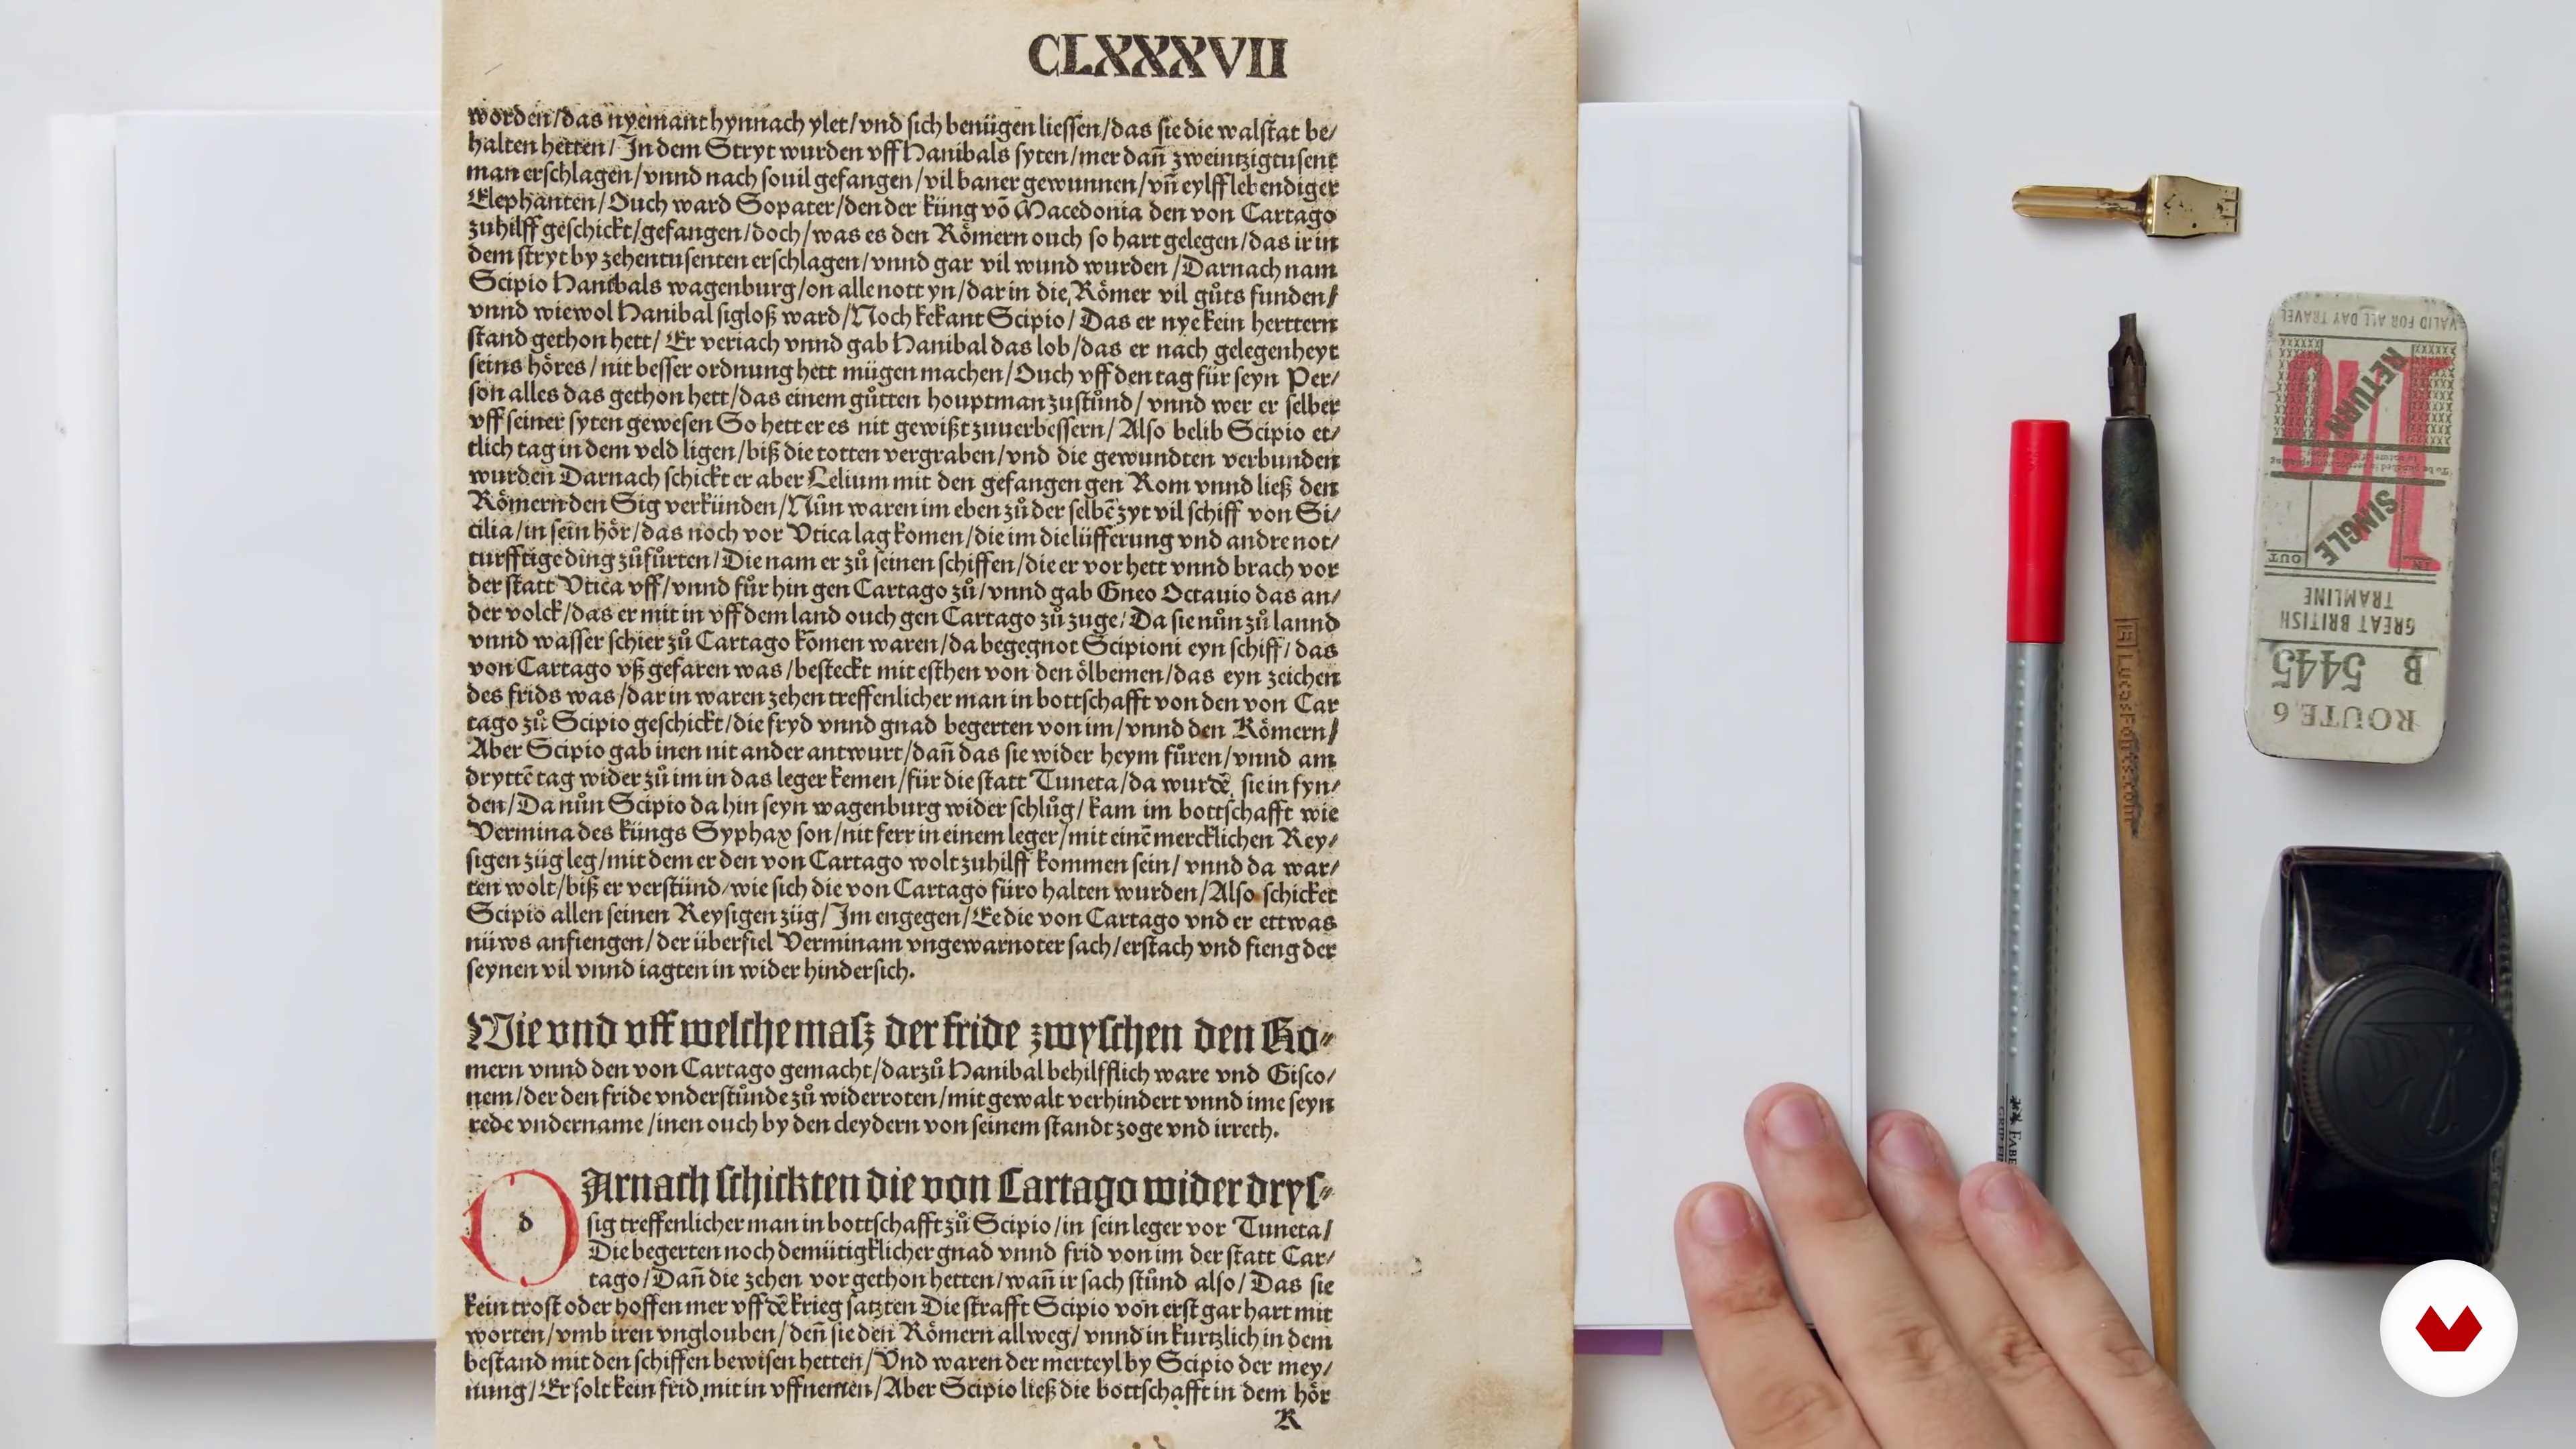 CLXXXVII
worden/das nyemant hynnach ylet/vnd sich benügen liessen/das sie die walstat be/
halten hetten/ In dem Stryt wurden vff Hanibals syten/mer dan̄ zweintzigtusent
man erschlagen/vnnd nach souil gefangen/vil baner gewunnen/vn̄ eylff lebendiger
Elephanten/Ouch ward Sopater/den der küng vō Macedonia den von Cartago
zuhilff geschickt/gefangen/doch/was es den Römern ouch so hart gelegen/das ir in
dem stryt by zehentusenten erschlagen/vnnd gar vil wund wurden/Darnach nam
Scipio Hanibals wagenburg/on alle nott yn/dar in die Römer vil gůts funden/
vnnd wiewol Hanibal sigloß ward/Noch kekant Scipio/ Das er nye kein herttern
stand gethon hett/ Er veriach vnnd gab Hanibal das lob/das er nach gelegenheyt
seins höres/nit besser ordnung hett mügen machen/Ouch vff den tag für seyn Per/
son alles das gethon hett/das einem gůtten houptman zustůnd/ vnnd wer er selber
vff seiner syten gewesen So hett er es nit gewißt zuuerbessern/ Also belib Scipio et/
tlich tag in dem veld ligen/biß die totten vergraben/vnd die gewundten verbunden
wurden Darnach schickt er aber Lelium mit den gefangen gen Rom vnnd ließ den
Römern den Sig verkünden/Nůn waren im eben zů der selbē zyt vil schiff von Si/
cilia/in sein hör/das noch vor Vtica lag komen/die im die lüfferung vnd andre not/
turfftige ding zůfůrten/Die nam er zů seinen schiffen/die er vor hett vnnd brach vor
der statt Vtica vff/vnnd fůr hin gen Cartago zů/vnnd gab Gneo Octauio das an/
der volck/das er mit in vff dem land ouch gen Cartago zů zuge/Da sie nůn zů lannd
vnnd wasser schier zů Cartago komen waren/da begegnot Scipioni eyn schiff/das
von Cartago vß gefaren was/besteckt mit esthen von den ölbemen/das eyn zeichen
des frids was/dar in waren zehen treffenlicher man in bottschafft von den von Car
tago zů Scipio geschickt/die fryd vnnd gnad begerten von im/vnnd den Römern/
Aber Scipio gab inen nit ander antwurt/dan̄ das sie wider heym fůren/vnnd am
dryttē tag wider zů im in das leger kemen/für die statt Tuneta/da wurdē sie in fyn/
den/Da nůn Scipio da hin seyn wagenburg wider schlůg/kam im bottschafft wie
Vermina des küngs Syphax son/nit ferr in einem leger/mit einē mercklichen Rey/
sigen züg leg/mit dem er den von Cartago wolt zuhilff kommen sein/ vnnd da war/
ten wolt/biß er verstünd/wie sich die von Cartago füro halten wurden/Also schicket
Scipio allen seinen Reysigen züg/Im engegen/Ee die von Cartago vnd er ettwas
nüws anfiengen/der überfiel Verminam vngewarnoter sach/erstach vnd fieng der
seynen vil vnnd iagten in wider hindersich.
Wie vnd vff welche masz der fride zwyschen den Ro-
mern vnnd den von Cartago gemacht/darzů Hanibal behilfflich ware vnd Gisco/
nem/der den fride vnderstůnde zů widerroten/mit gewalt verhindert vnnd ime seyn
rede vndername/inen ouch by den cleydern von seinem standt zoge vnd irreth.
d
Arnach schickten die von Cartago wider drys-
sig treffenlicher man in bottschafft zů Scipio/in sein leger vor Tuneta/
Die begerten noch demütigklicher gnad vnnd frid von im der statt Car/
tago/Dan̄ die zehen vor gethon hetten/wan̄ ir sach stůnd also/Das sie
kein trost oder hoffen mer vff dē krieg satzten Die strafft Scipio von erst gar hart mit
worten/vmb iren vnglouben/den̄ sie den Römern allweg/ vnnd in kurtzlich in dem
bestand mit den schiffen bewisen hetten/Vnd waren der merteyl by Scipio der mey/
nung/Er solt kein frid mit in vffnemen/Aber Scipio ließ die bottschafft in dem hör
R
VALID FOR ALL DAY TRAVEL
RETURN
SINGLE
IN
OUT
GREAT BRITISH
TRAMLINE
B 5445
ROUTE 6
FABE